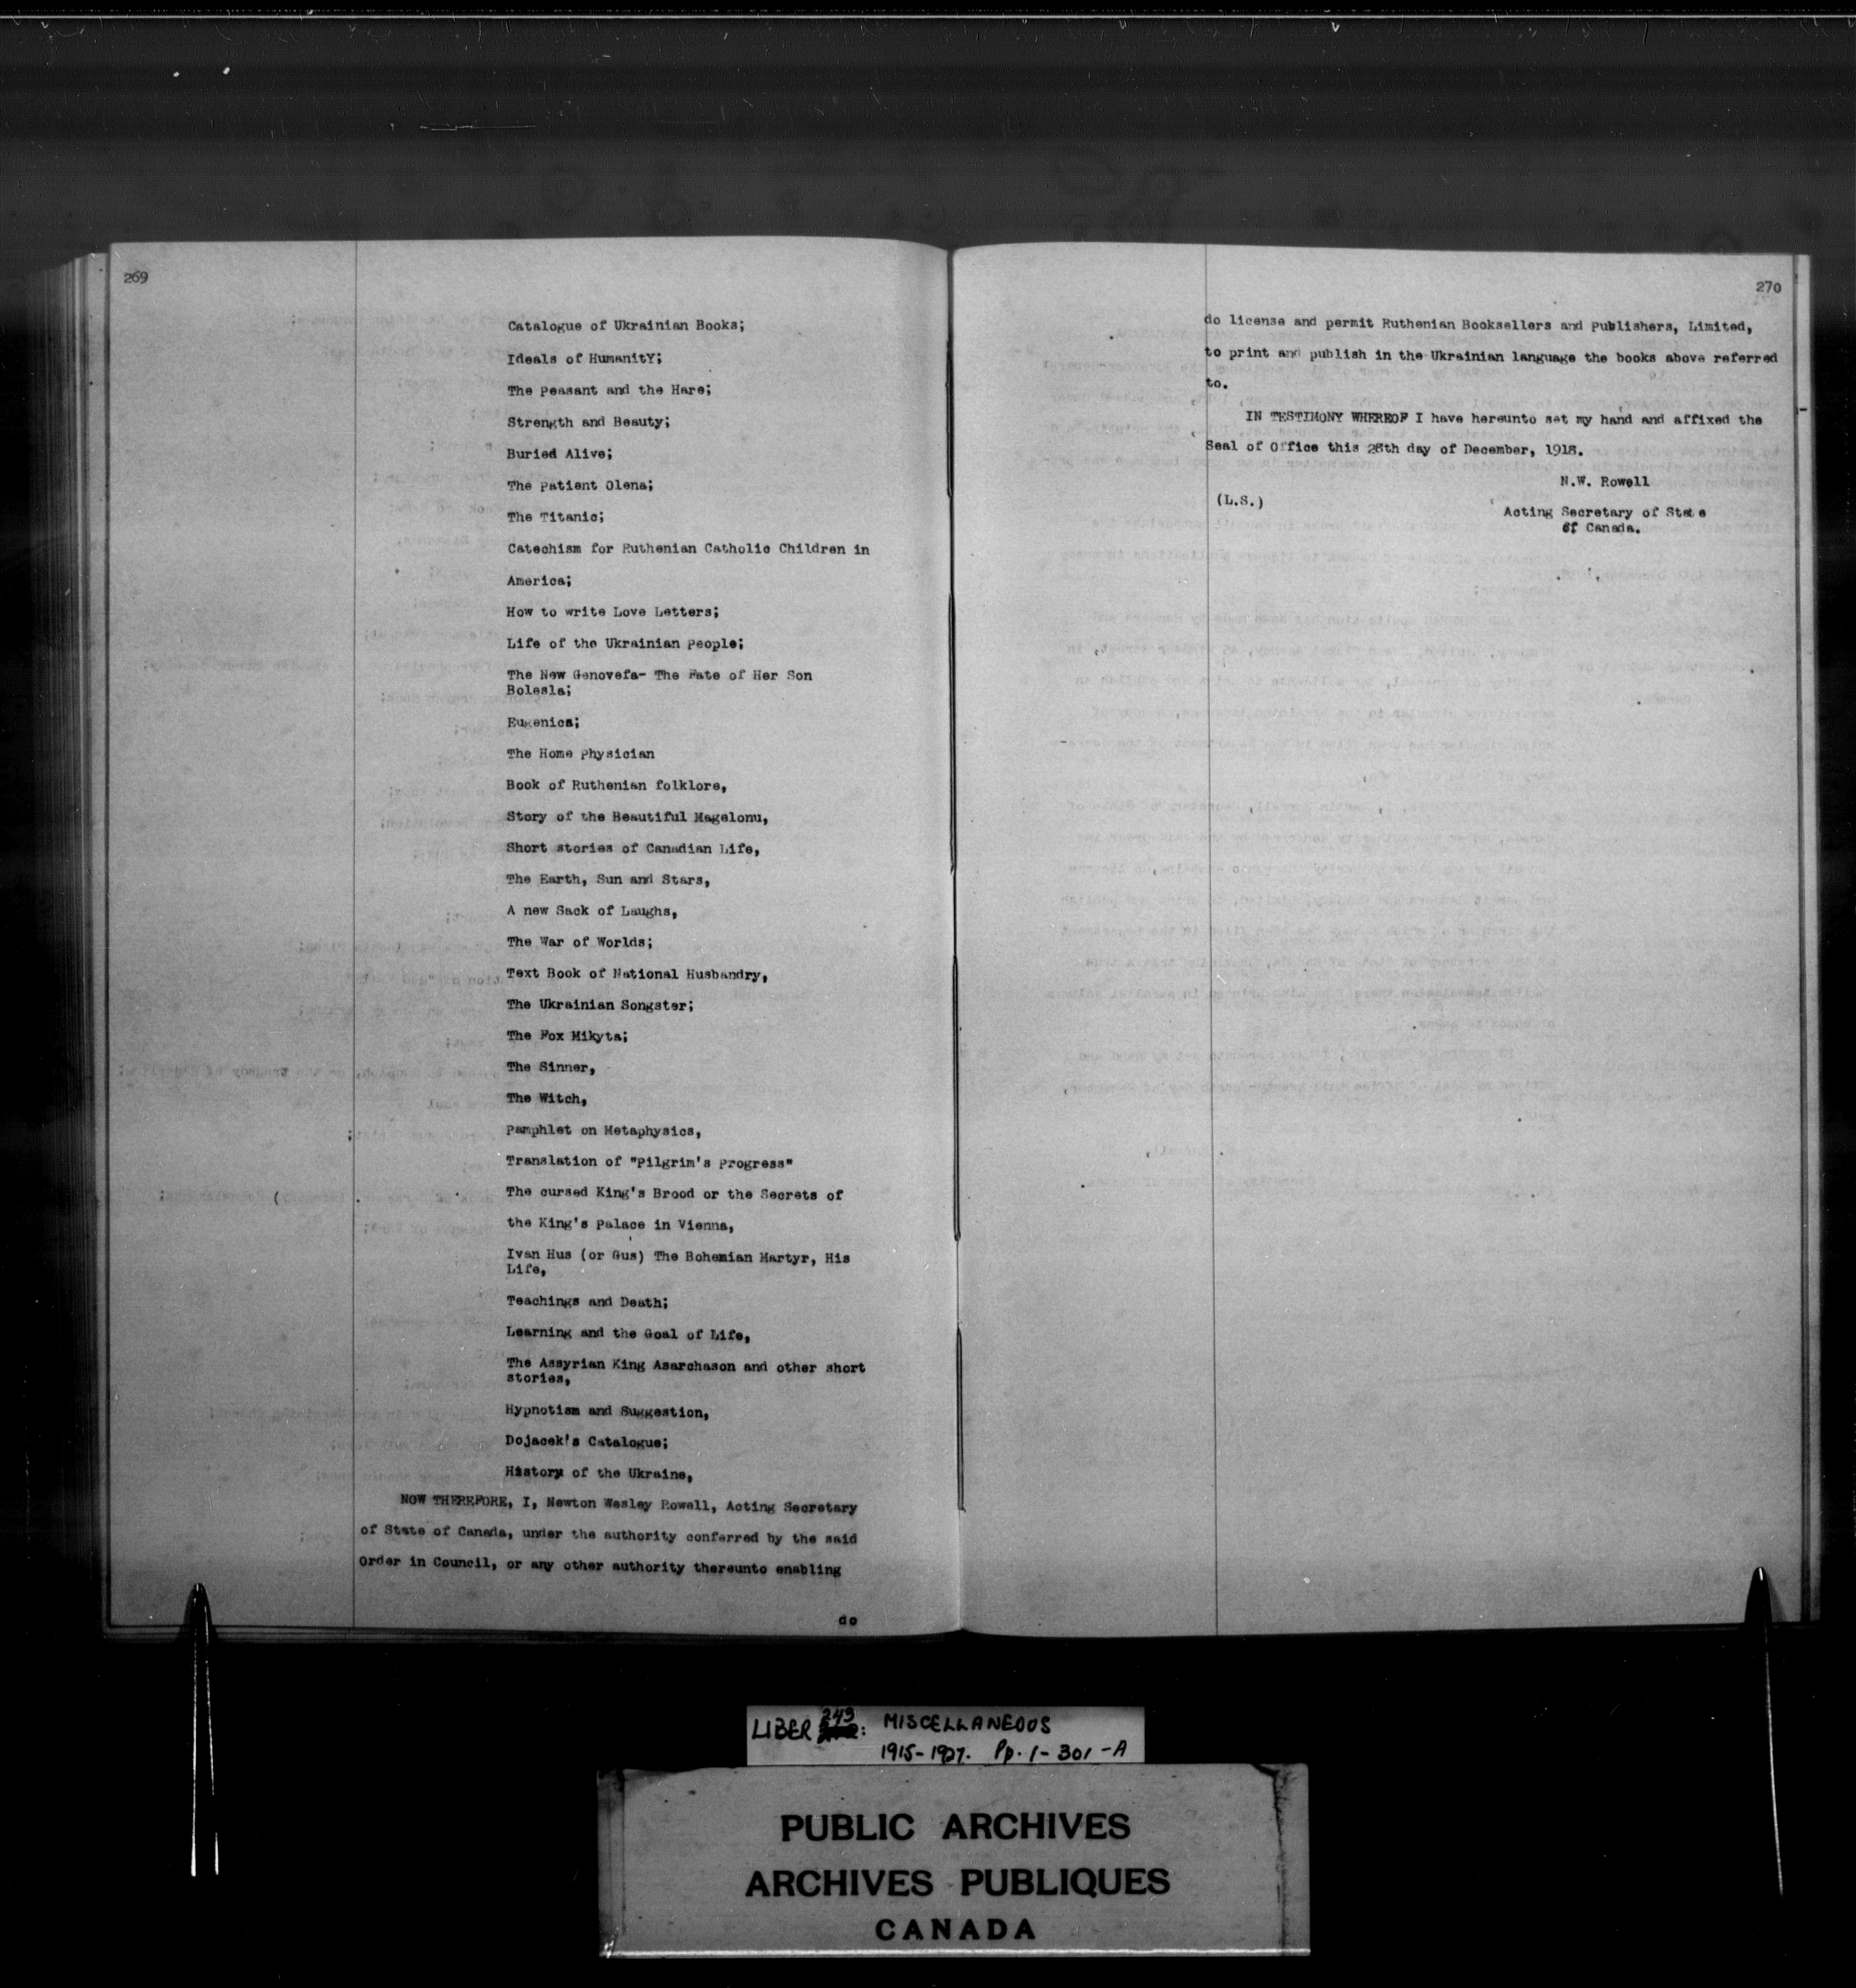 269
Catalogue of Ukrainian Books;
Ideals of HumanitY;
The Peasant and the Hare;
Strength and Beauty;
Buried Alive;
The Patient Olena;
The Titanic;
Catechism for Ruthenian Catholic Children in
America;
How to write Love Letters;
Life of the Ukrainian People;
The New Genovefa- The Fate of Her Son
Bolesla;
Eugenics;
The Home Physician
Book of Ruthenian folklore,
Story of the Beautiful Magelonu,
Short stories of Canadian Life,
The Earth, Sun and Stars,
A new Sack of Laughs,
The War of Worlds;
Text Book of National Husbandry,
The Ukrainian Songster;
The Fox Mikyta;
The Sinner,
The Witch,
Pamphlet on Metaphysics,
Translation of "Pilgrim's Progress"
The cursed King's Brood or the Secrets of
the King's Palace in Vienna,
Ivan Hus (or Gus) The Bohemian Martyr, His
Life,
Teachings and Death;
Learning and the Goal of Life,
The Assyrian King Asarchason and other short
stories,
Hypnotism and Suggestion,
Dojacek's Catalogue;
History of the Ukraine,
NOW THEREFORE, I, Newton Wesley Rowell, Acting Secretary
of State of Canada, under the authority conferred by the said
Order in Council, or any other authority thereunto enabling
do
270
do license and permit Ruthenian Booksellers and Publishers, Limited,
to print and publish in the Ukrainian language the books above referred
to.
IN TESTIMONY WHEREOF I have hereunto set my hand and affixed the
Seal of Office this 28th day of December, 1918.
N.W. Rowell
(L.S.)
Acting Secretary of State
of Canada.
LIBER 243: MISCELLANEOUS
1915-1927. Pp. 1-301-A
PUBLIC ARCHIVES
ARCHIVES PUBLIQUES
CANADA